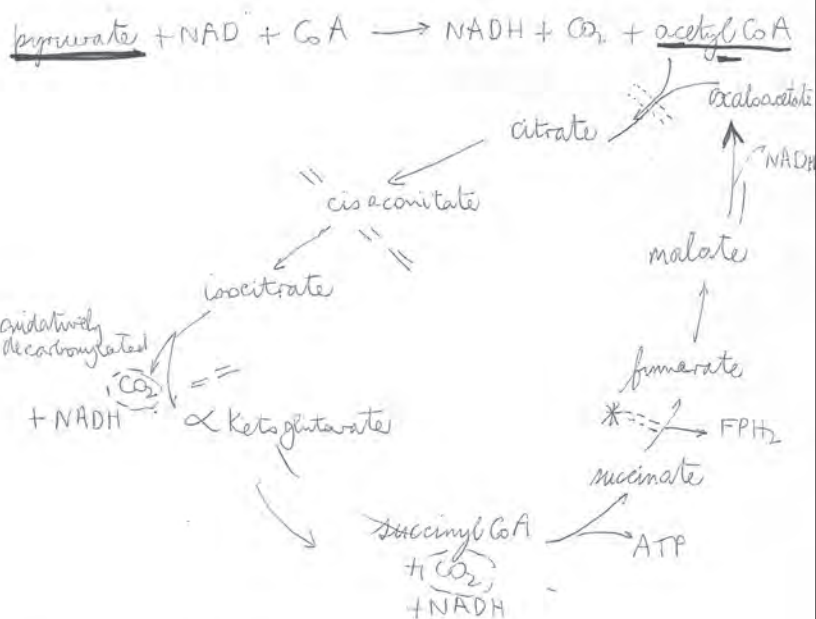 pyruvate + NAD + CoA → NADH + CO2 + acetyl CoA
oxaloacetate
citrate
NADH
cis aconitate
malate
isocitrate
oxidatively
decarboxylated
CO2
+ NADH
fumarate
α Ketoglutarate
FPH2
succinate
succinyl CoA
ATP
+ CO2
+ NADH